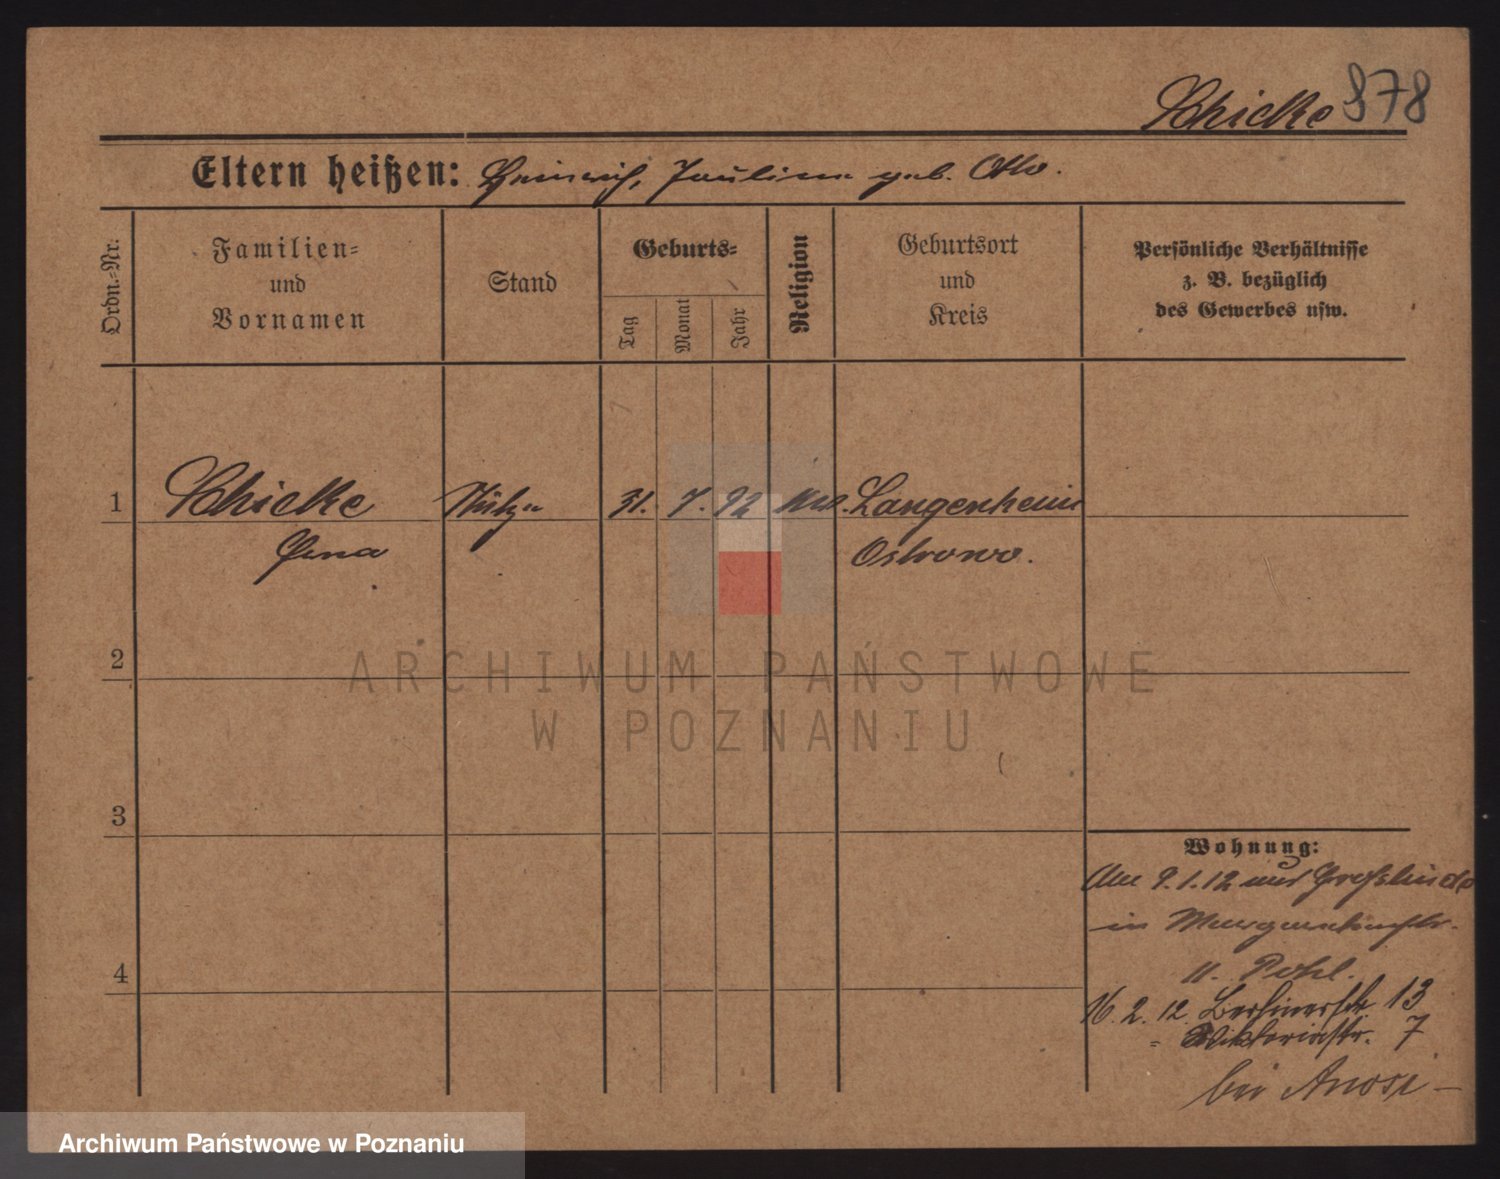 Schicke 878
Eltern heißen: Heinrich, Pauline geb. Otto.
Ordn.=Nr.
Familien=
und
Vornamen
Stand
Geburts=
Tag
Monat
Jahr
Religion
Geburtsort
und
Kreis
Persönliche Verhältnisse
z. B. bezüglich
des Gewerbes usw.
1 Schicke Stütze 31. 7. 92 Langenheim
Ostrowo.
2
3
4
Wohnung:
9.1.12 aus
in
11. Pohl.
16. 2. 12. Berlinerstr. 13
= Viktoriastr. 7
bei
ARCHIWUM PAŃSTWOWE
W POZNANIU
Archiwum Państwowe w Poznaniu